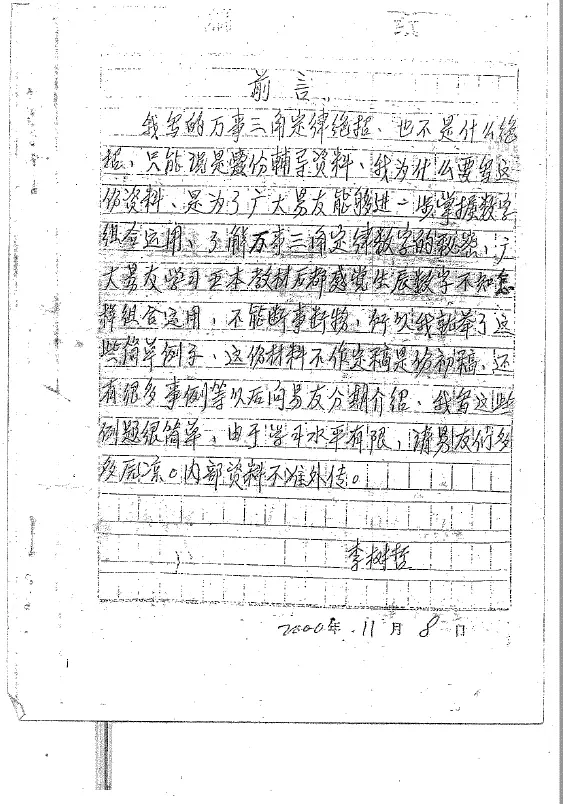 前言
我写的万事三角定律绝招、也不是什么绝
招、只能说是壹份輔导资料、我为什么要写这
份资料、是为了广大易友能够进一步掌握数字
组合运用、了解万事三角定律数字的秘密、广
大易友学习至本教材后都感觉生辰数字不知怎
样组合运用、不能断事断物、所以我就举了这
些简单例子、这份材料不作定稿是份初稿、还
有很多事例等以后向易友分期介绍、我写这些
例题很简单、由于学习水平有限、请易友们多
多原凉。内部资料不准外传。
李树哲
2000年 11月 8日